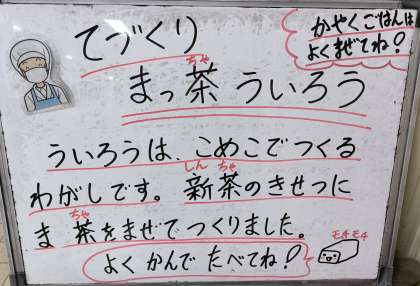 かやくごはんは
よくまぜてね!
てづくり
まっ茶ういろう
ちゃ
ういろうは、こめこでつくる
わがしです。新茶のきせつに
しん ちゃ
ま茶をまぜてつくりました。
ちゃ
よくかんでたべてね!
モチモチ